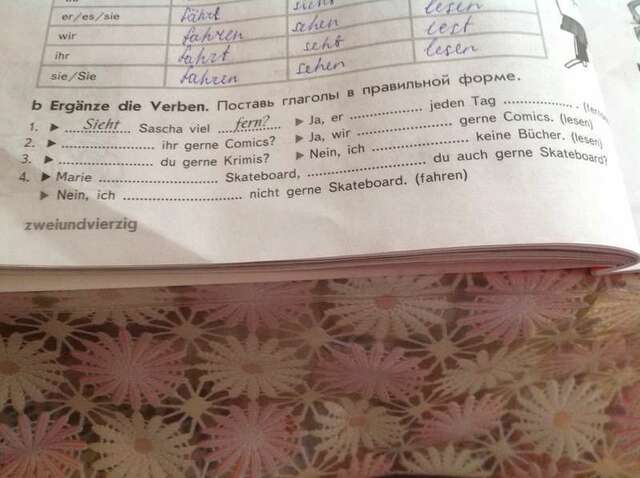 er/es/sie fährt sieht lesen
wir fahren sehen lest
ihr fahrt seht lesen
sie/Sie fahren sehen
b Ergänze die Verben. Поставь глаголы в правильной форме.
1. ▶ Sieht Sascha viel fern? ▶ Ja, er .................. jeden Tag ................. .
2. ▶ .................. ihr gerne Comics? ▶ Ja, wir .................. gerne Comics. (lesen)
3. ▶ .................. du gerne Krimis? ▶ Nein, ich .................. keine Bücher. (lesen)
4. ▶ Marie .................. Skateboard, .................. du auch gerne Skateboard?
▶ Nein, ich .................. nicht gerne Skateboard. (fahren)
zweiundvierzig